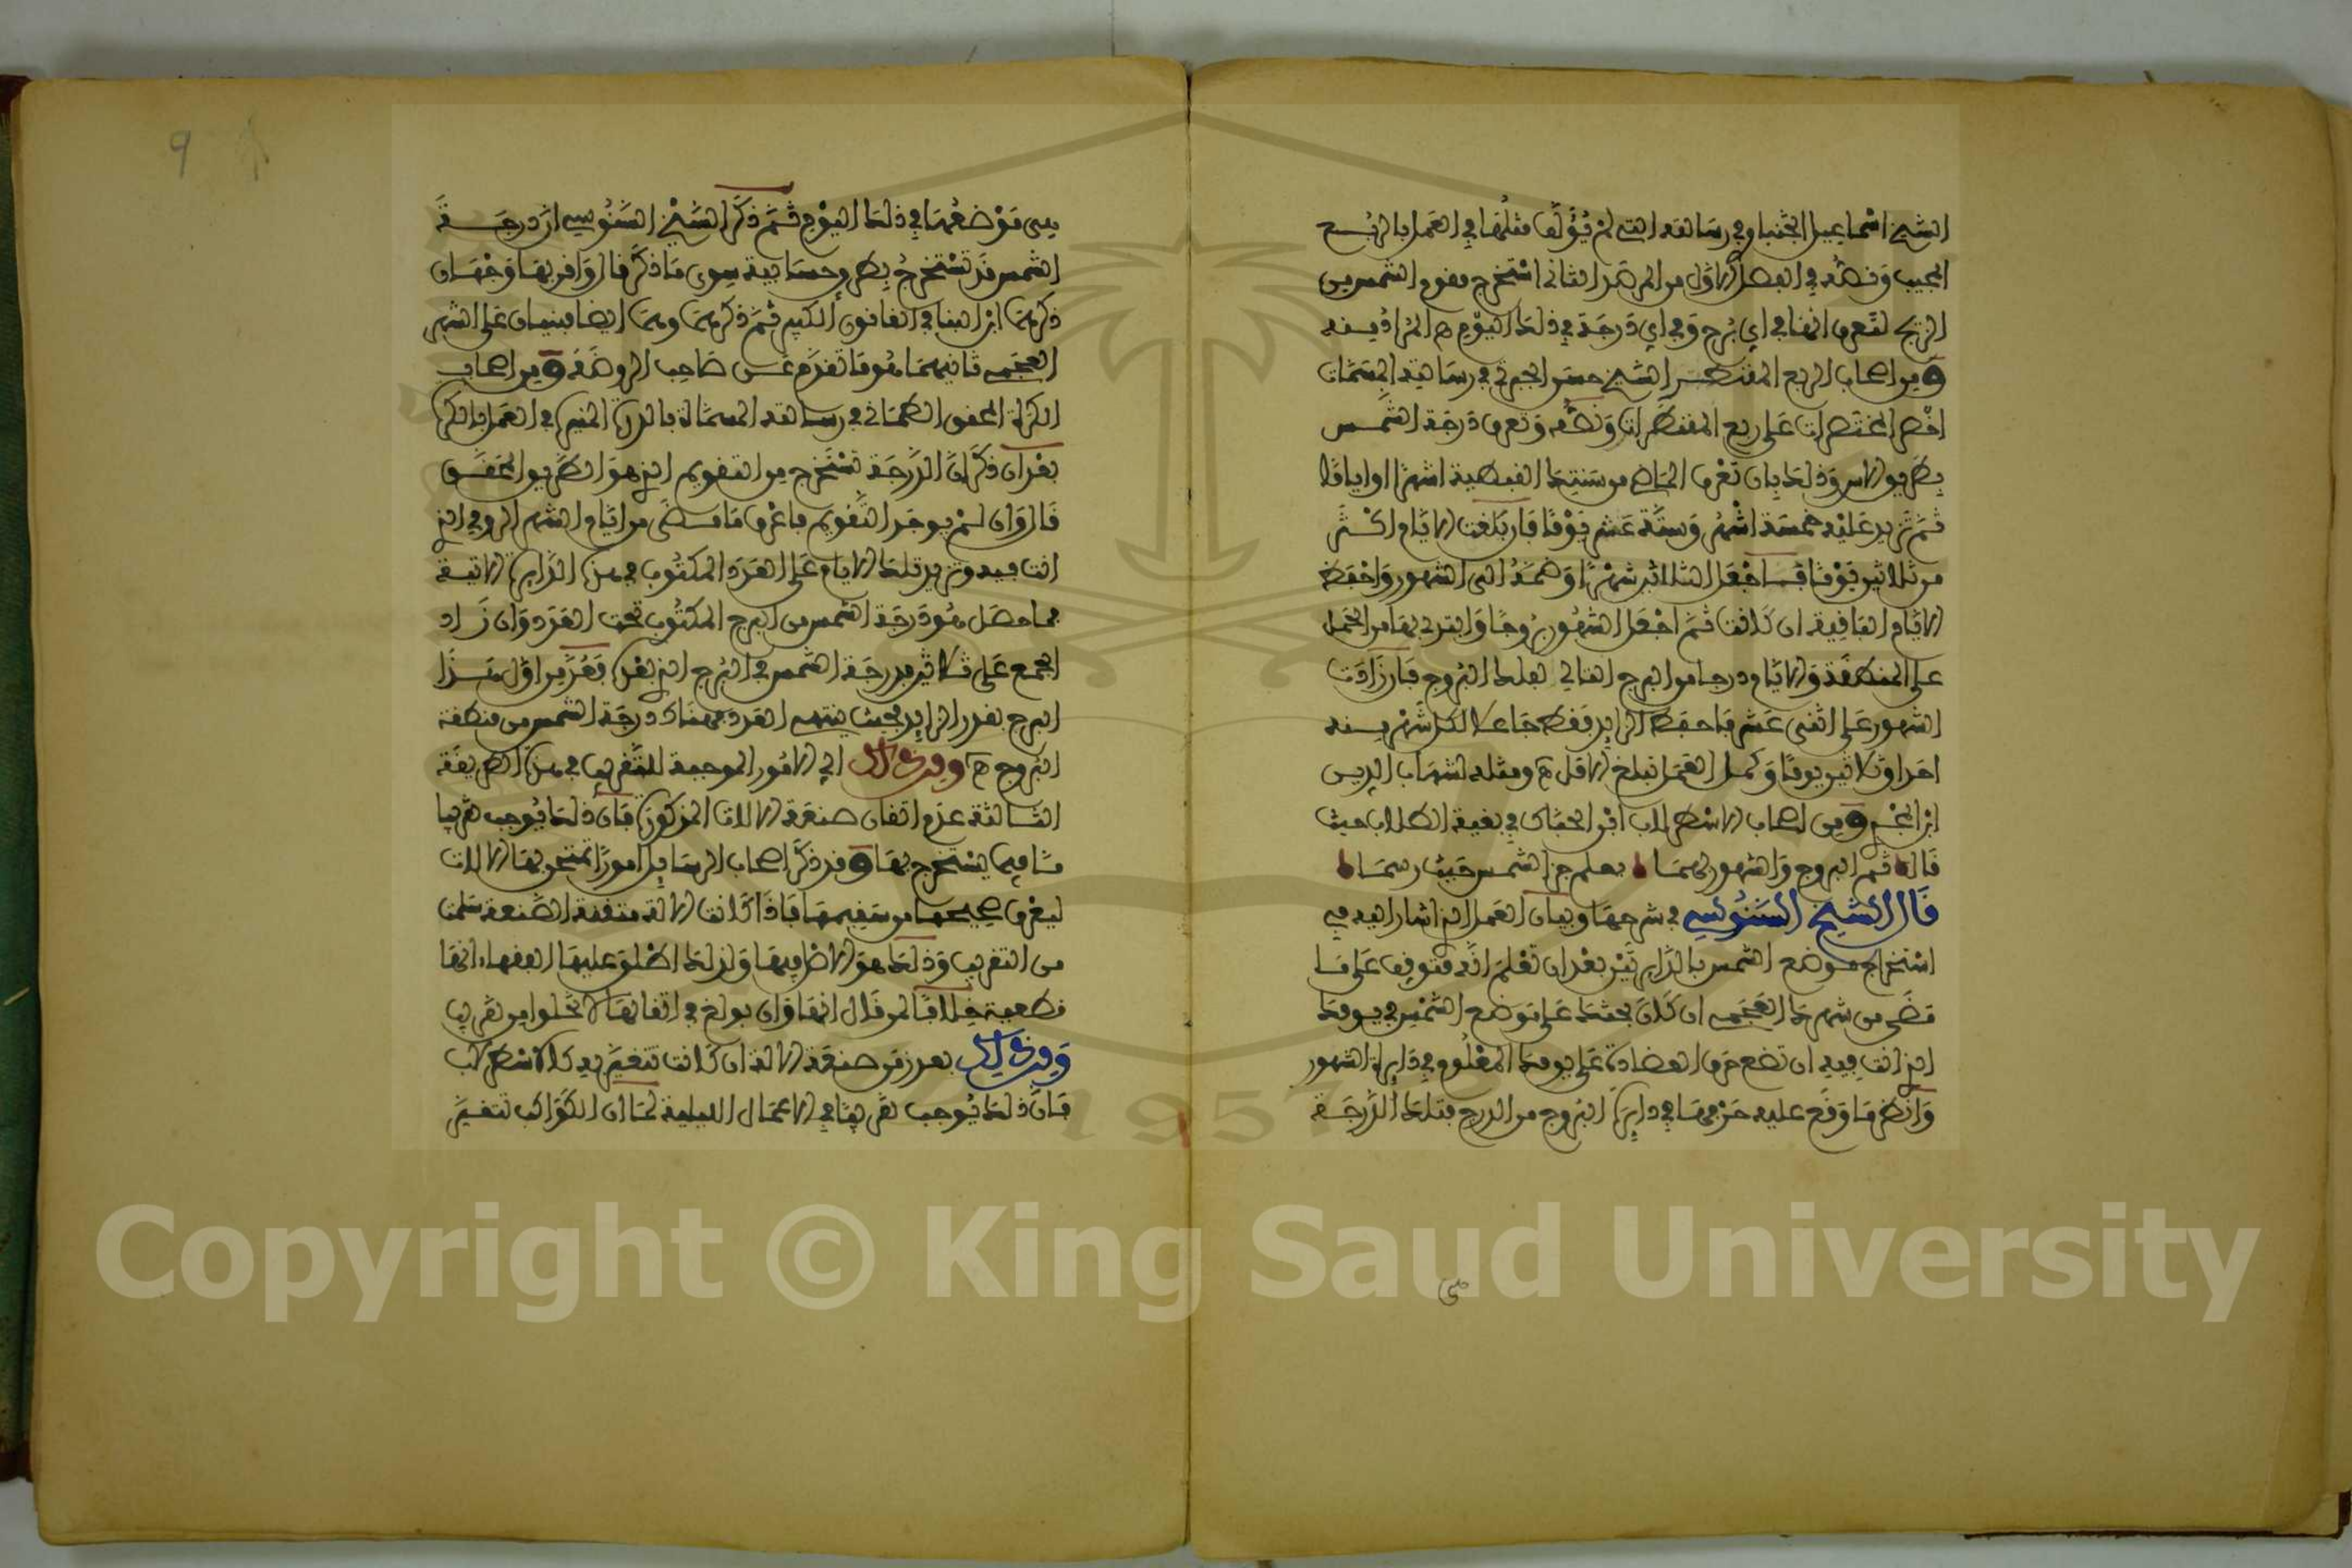 الشيخ اسماعيل الجنباوي في رسالته التي لم يؤلف مثلها في العمل بالربع
المجيب ونصه في الفصل الاول من المرصد الثاني استخرج مقوم الشمس من
الزيج لتعرف انها في اي برج وفي اي درجة في ذلك اليوم ه المراد منه
ومن اصحاب الربع المقنطر الشيخ حسن الجبرتي في رسالته المسمات
اخصر المختصرات على ربع المقنطرات ونصه وتعرف درجة الشمس
بطريق الاس وذلك بان تعرف الماضي من سنتك القبطية اشهرا او اياما
ثم تزيد عليه خمسة اشهر وستة عشر يوما فان بلغت الايام اكثر
من ثلاثين يوما فاجعل الثلاثين شهرا وضمه الى الشهور واحفظ
الايام الباقية ان كانت ثم اجعل الشهور بروجا وابتدئ بها من الحمل
على المنطقة والايام درجا من البرج التالي لتلك البروج فان زادت
الشهور على اثنى عشر فاحفظ الزايد فقط جاعلا لكل شهر منه
احدا وثلاثين يوما وكمل العمل تبلغ الامل ه ومثله لشهاب الدين
ابن المجدي ومن اصحاب الاسطرلاب ابن الحباك في بغية الطلاب حيث
قال ثم البروج والشهور لهما يعلم جزء الشمس حيث رسما
قال الشيخ السنوسي في شرحها وبيان العمل الذي اشار اليه في
استخراج موضع الشمس بالدايرتين بعد ان تعلم انه متوقف على ما
مضى من شهرك العجمي ان كان بحثك على موضع الشمس في يومك
الذي انت فيه ان تضع حرف العضادة على يومك المعلوم في دايرة الشهور
وانظر ما وقع عليه حرفها في دايرة البروج من الدرج فتلك الدرجة
هي
هي موضعها في ذلك اليوم ثم ذكر الشيخ السنوسي ان درجة
الشمس قد تستخرج بطرق حسابية سوى ما ذكر قال واقربها وجهان
ذكرهما ابن البنا في القانون الكبير ثم ذكرهما وهما ايضا مبنيان على الشهر
العجمي ثانيهما هو ما تقدم عن صاحب الروضة ومن اصحاب
الكرة المحقق الطماني في رسالته المسماة بالدرة المنيرة في العمل بالكرة
بعد ان ذكر ان الدرجة تستخرج من التقويم الذي هو الطريق المحقق
قال وان لم يوجد التقويم فاعرف ما مضى من ايام الشهر الرومي الذي
انت فيه وتزيد تلك الايام على العدد المكتوب في هذه الدايرة الاتية
فما حصل هو درجة الشمس من البرج المكتوب تحت العدد وان زاد
الجمع على ثلاثين فدرجة الشمس في البرج الذي بعده فعد من اول هذا
البرج بقدر الزايد فحيث ينتهي العدد فهناك درجة الشمس من منطقة
البروج ه ومرجع ذلك الى الامور الموجبة للتقريب في هذه الطريقة
الثالثة عدم اتقان صنعة الالات المذكورة فان ذلك يوجب تقريبا
ما فيما يستخرج بها وقد ذكر اصحاب الرسايل امورا تمتحن بها الالات
ليعرف صحيحها من سقيمها فاذا كانت الالة متقنة الصنعة سلمت
من التقريب وذلك هو الاصل فيها ولذلك اطلق عليها الفقهاء انها
قطعية خلافا لمن قال انها وان بولغ في اتقانها لا تخلوا من تقريب
ومن ذلك بعد زمن صنعة الالة ان كانت تتغير به كالاسطرلاب
فان ذلك يوجب تقريبا في الاعمال الليلية لما ان الكواكب تتغير